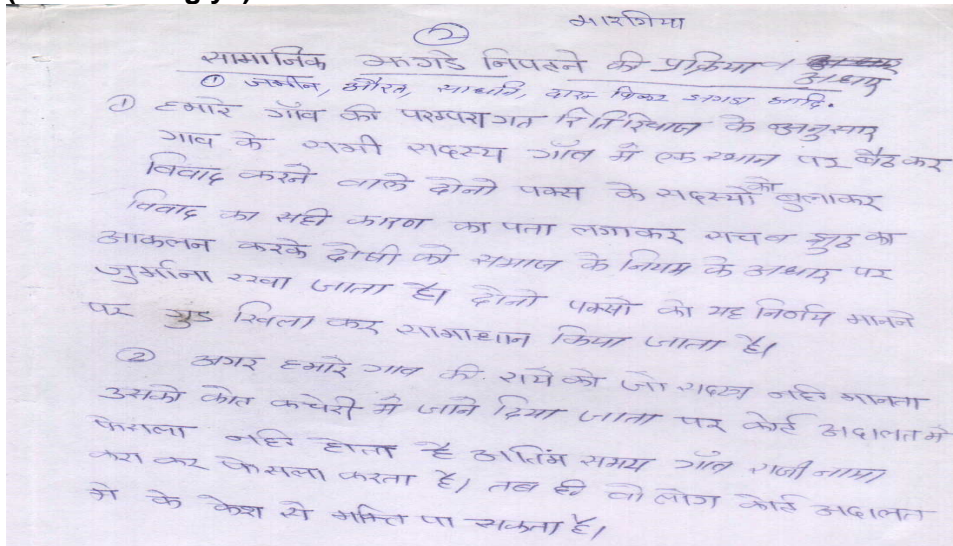 ②
भारगिया
सामाजिक झगडे निपटने की प्रक्रिया । अधार
① जमीन, औरत, साधति, दारु पिकर झगडा आदि.
① हमारे गाँव की परम्परागत रितिरिवाज के अनुसार
गाव के सभी सदस्य गाँव में एक स्थान पर बैठ कर
विवाद करने वाले दोनो पक्स के सदस्यों को बुलाकर
विवाद का सही कारण का पता लगाकर सच व झुठ का
आकलन करके दोषी को समाज के नियम के अधार पर
जुर्माना रखा जाता है। दोनो पक्सो का यह निर्णय मानने
पर गुड खिला कर सामाधान किया जाता है।
② अगर हमारे गाव की राये को जो सदस्य नहि मानता
उसको कोत कचेरी में जाने दिया जाता पर कोर्ट अदालत मे
फेसला नहि होता है अतिंम समय गाँव राजीनामा
करा कर फेसला करता है। तब ही वो लोग कोर्ट अदालत
मे के केश से मुक्ति पा सकता है।